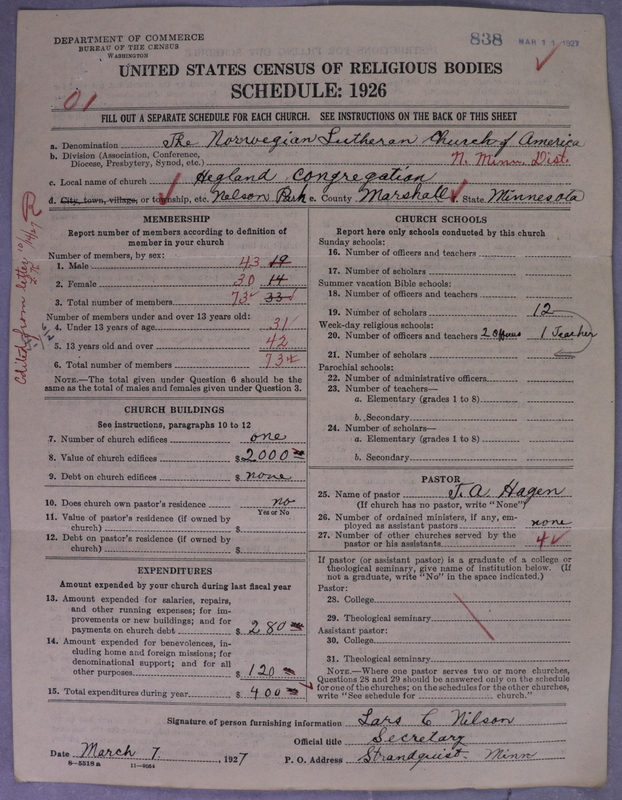 DEPARTMENT OF COMMERCE
BUREAU OF THE CENSUS
WASHINGTON
838 MAR 11 1927
UNITED STATES CENSUS OF RELIGIOUS BODIES
SCHEDULE: 1926
01
FILL OUT A SEPARATE SCHEDULE FOR EACH CHURCH. SEE INSTRUCTIONS ON THE BACK OF THIS SHEET
a. Denomination The Norwegian Lutheran Church of America
b. Division (Association, Conference,
Diocese, Presbytery, Synod, etc.) N. Minn. Dist.
c. Local name of church Hegland Congregation
d. City, town, village, or township, etc. Nelson Park e. County Marshall f. State Minnesota
Edited from letter 10/14/27
MEMBERSHIP
Report number of members according to definition of
member in your church
Number of members, by sex:
1. Male 43 19
2. Female 30 14
3. Total number of members 73 33
Number of members under and over 13 years old:
4. Under 13 years of age 31
5. 13 years old and over 42
6. Total number of members 73
NOTE.—The total given under Question 6 should be
the same as the total of males and females given under Question 3.
CHURCH BUILDINGS
See instructions, paragraphs 10 to 12
7. Number of church edifices one
8. Value of church edifices $ 2000
9. Debt on church edifices $ none
10. Does church own pastor's residence no
Yes or No
11. Value of pastor's residence (if owned by
church) $
12. Debt on pastor's residence (if owned by
church) $
EXPENDITURES
Amount expended by your church during last fiscal year
13. Amount expended for salaries, repairs,
and other running expenses; for im-
provements or new buildings; and for
payments on church debt $ 280
14. Amount expended for benevolences, in-
cluding home and foreign missions; for
denominational support; and for all
other purposes $ 120
15. Total expenditures during year $ 400
CHURCH SCHOOLS
Report here only schools conducted by this church
Sunday schools:
16. Number of officers and teachers
17. Number of scholars
Summer vacation Bible schools:
18. Number of officers and teachers
19. Number of scholars 12
Week-day religious schools:
20. Number of officers and teachers 2 Officers 1 Teacher
21. Number of scholars
Parochial schools:
22. Number of administrative officers
23. Number of teachers—
a. Elementary (grades 1 to 8)
b. Secondary
24. Number of scholars—
a. Elementary (grades 1 to 8)
b. Secondary
PASTOR
25. Name of pastor T. A. Hagen
(If church has no pastor, write "None")
26. Number of ordained ministers, if any, em-
ployed as assistant pastors none
27. Number of other churches served by the
pastor or his assistants 4
If pastor (or assistant pastor) is a graduate of a college or
theological seminary, give name of institution below. (If
not a graduate, write "No" in the space indicated.)
Pastor:
28. College
29. Theological seminary
Assistant pastor:
30. College
31. Theological seminary
NOTE.—Where one pastor serves two or more churches,
Questions 28 and 29 should be answered only on the schedule
for one of the churches; on the schedules for the other churches,
write "See schedule for church."
Signature of person furnishing information Lars C Nilson
Official title Secretary
Date March 7. 1927 P. O. Address Strandquist. Minn
8—5518 a 11—9564